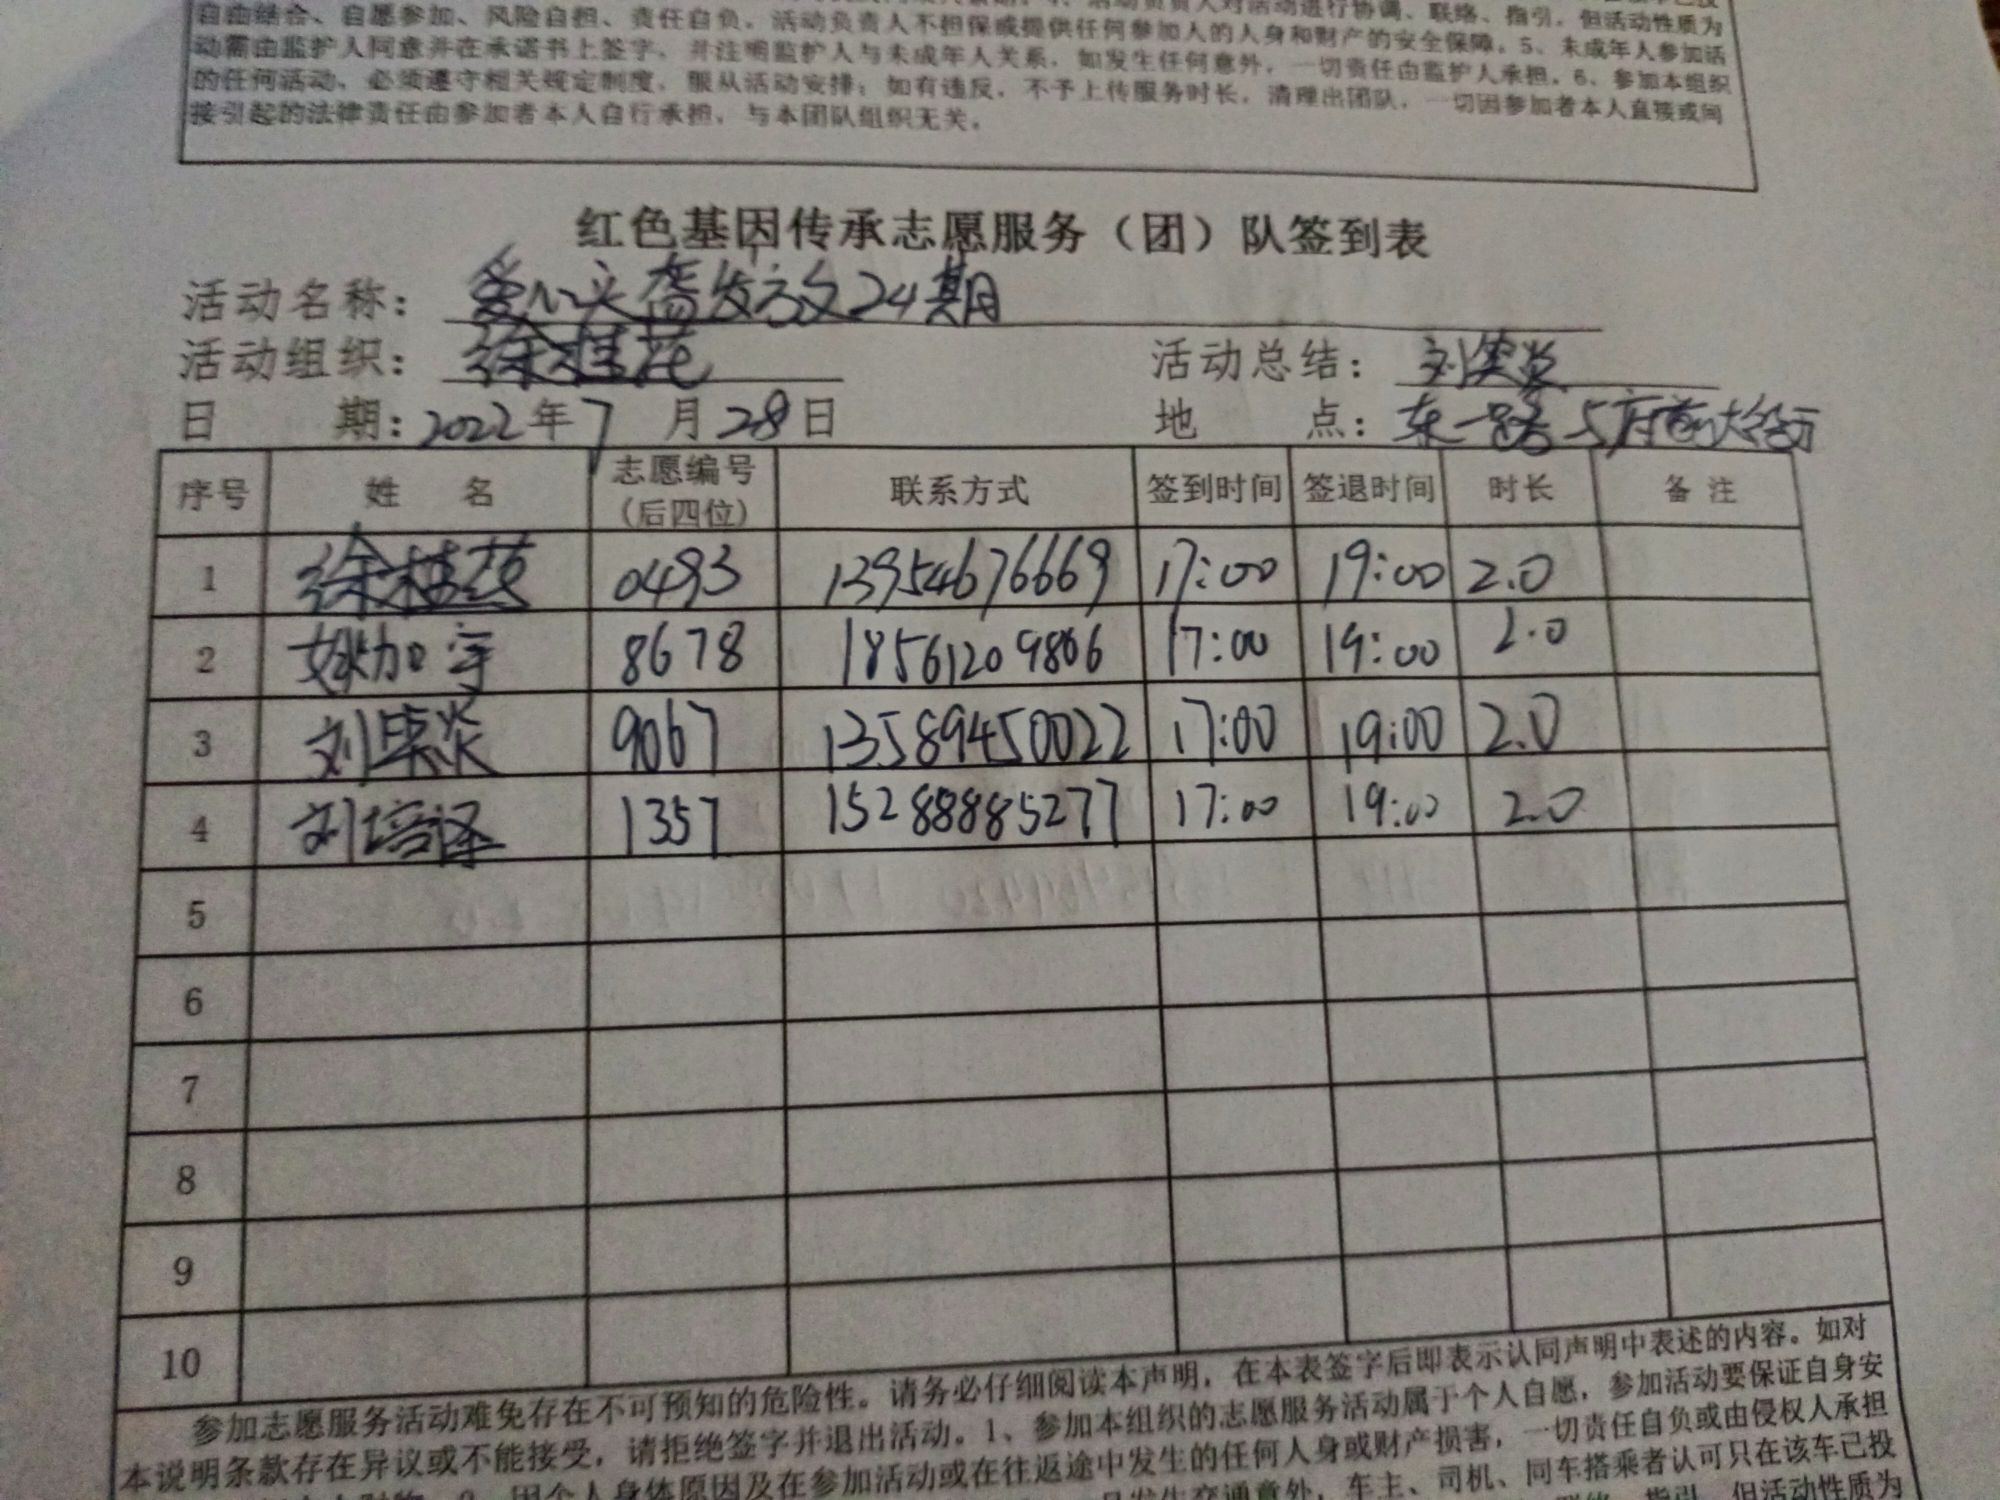 自由结合、自愿参加、风险自担、责任自负。活动负责人对活动进行协调、联络、指引，但活动性质为
动需由监护人同意并在承诺书上签字，并注明监护人与未成年人关系，如发生任何意外，一切责任由监护人承担。6、参加本组织
的任何活动、必须遵守相关规定制度，服从活动安排；如有违反，不予上传服务时长，清理出团队，一切因参加者本人直接或间
接引起的法律责任由参加者本人自行承担，与本团队组织无关。
红色基因传承志愿服务（团）队签到表
活动名称： 爱心头盔发放24期
活动组织： 徐桂花 活动总结：
日 期: 2022年7月28日 地 点: 东一路与府前大街
序号 姓 名 志愿编号（后四位） 联系方式 签到时间 签退时间 时长 备 注
1 徐桂花 0493 13954676669 17:00 19:00 2.0
2 姚加宇 8678 18561209806 17:00 19:00 2.0
3 9067 13589450022 17:00 19:00 2.0
4 刘培译 1357 15288885277 17:00 19:00 2.0
5
6
7
8
9
10
参加志愿服务活动难免存在不可预知的危险性。请务必仔细阅读本声明，在本表签字后即表示认同声明中表述的内容。如对
本说明条款存在异议或不能接受，请拒绝签字并退出活动。1、参加本组织的志愿服务活动属于个人自愿，参加活动要保证自身安
因个人身体原因及在参加活动或在往返途中发生的任何人身或财产损害，一切责任自负或由侵权人承担
发生交通意外，车主、司机、同车搭乘者认可只在该车已投
但活动性质为